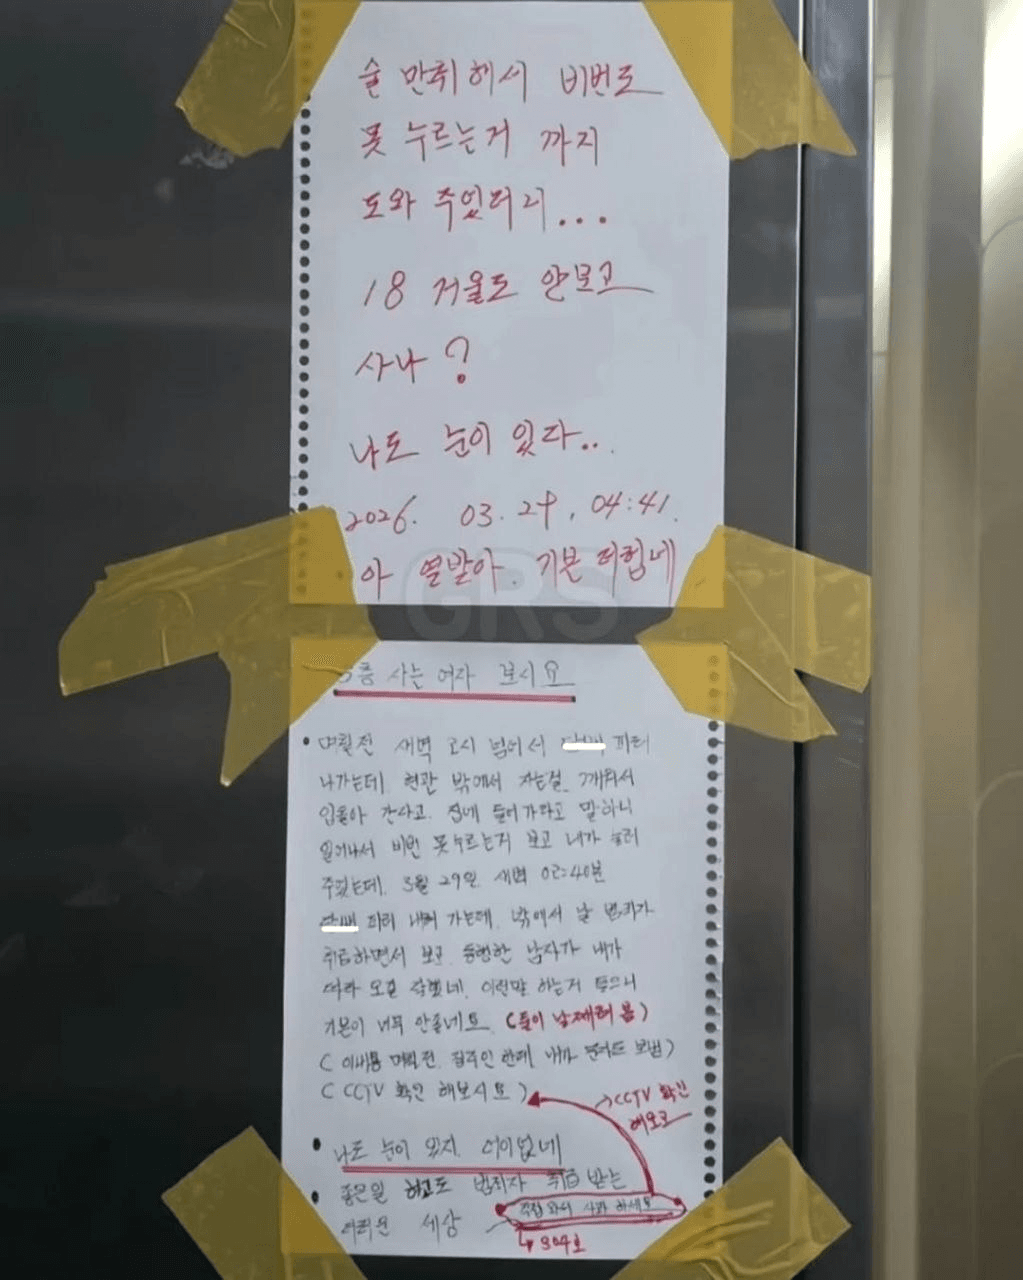 술 만취해서 비번도
못 누르는거 까지
도와 주었더니...
18 거울도 안보고
사나?
나도 눈이 있다...
2026. 03. 29. 04:41.
아 열받아. 기분 더럽네
GRS
층 사는 여자 보시요
• 며칠전 새벽 2시 넘어서 피러
나가는데. 현관 밖에서 자는걸 깨워서
입돌아 간다고. 집에 들어가라고 말하니
일어나서 비번 못누르는거 보고 내가 눌러
주었는데. 3월 29일. 새벽 02:40분
피러 내려 가는데. 밖에서 날 범죄자
취급하면서 보고. 동행한 남자가 내가
따라 오길 잘했네. 이런말 하는거 들으니
기분이 너무 안좋네요. (둘이 날 째려 봄)
( 이내용 며칠전. 집주인 한테 내가 문자도 보냄)
( CCTV 확인 해보시요 )
→CCTV 확인
해보고
• 나도 눈이 있지. 어이없네
• 좋은일 하고도 범죄자 취급 받는
더러운 세상
직접 와서 사과 하세요
304호